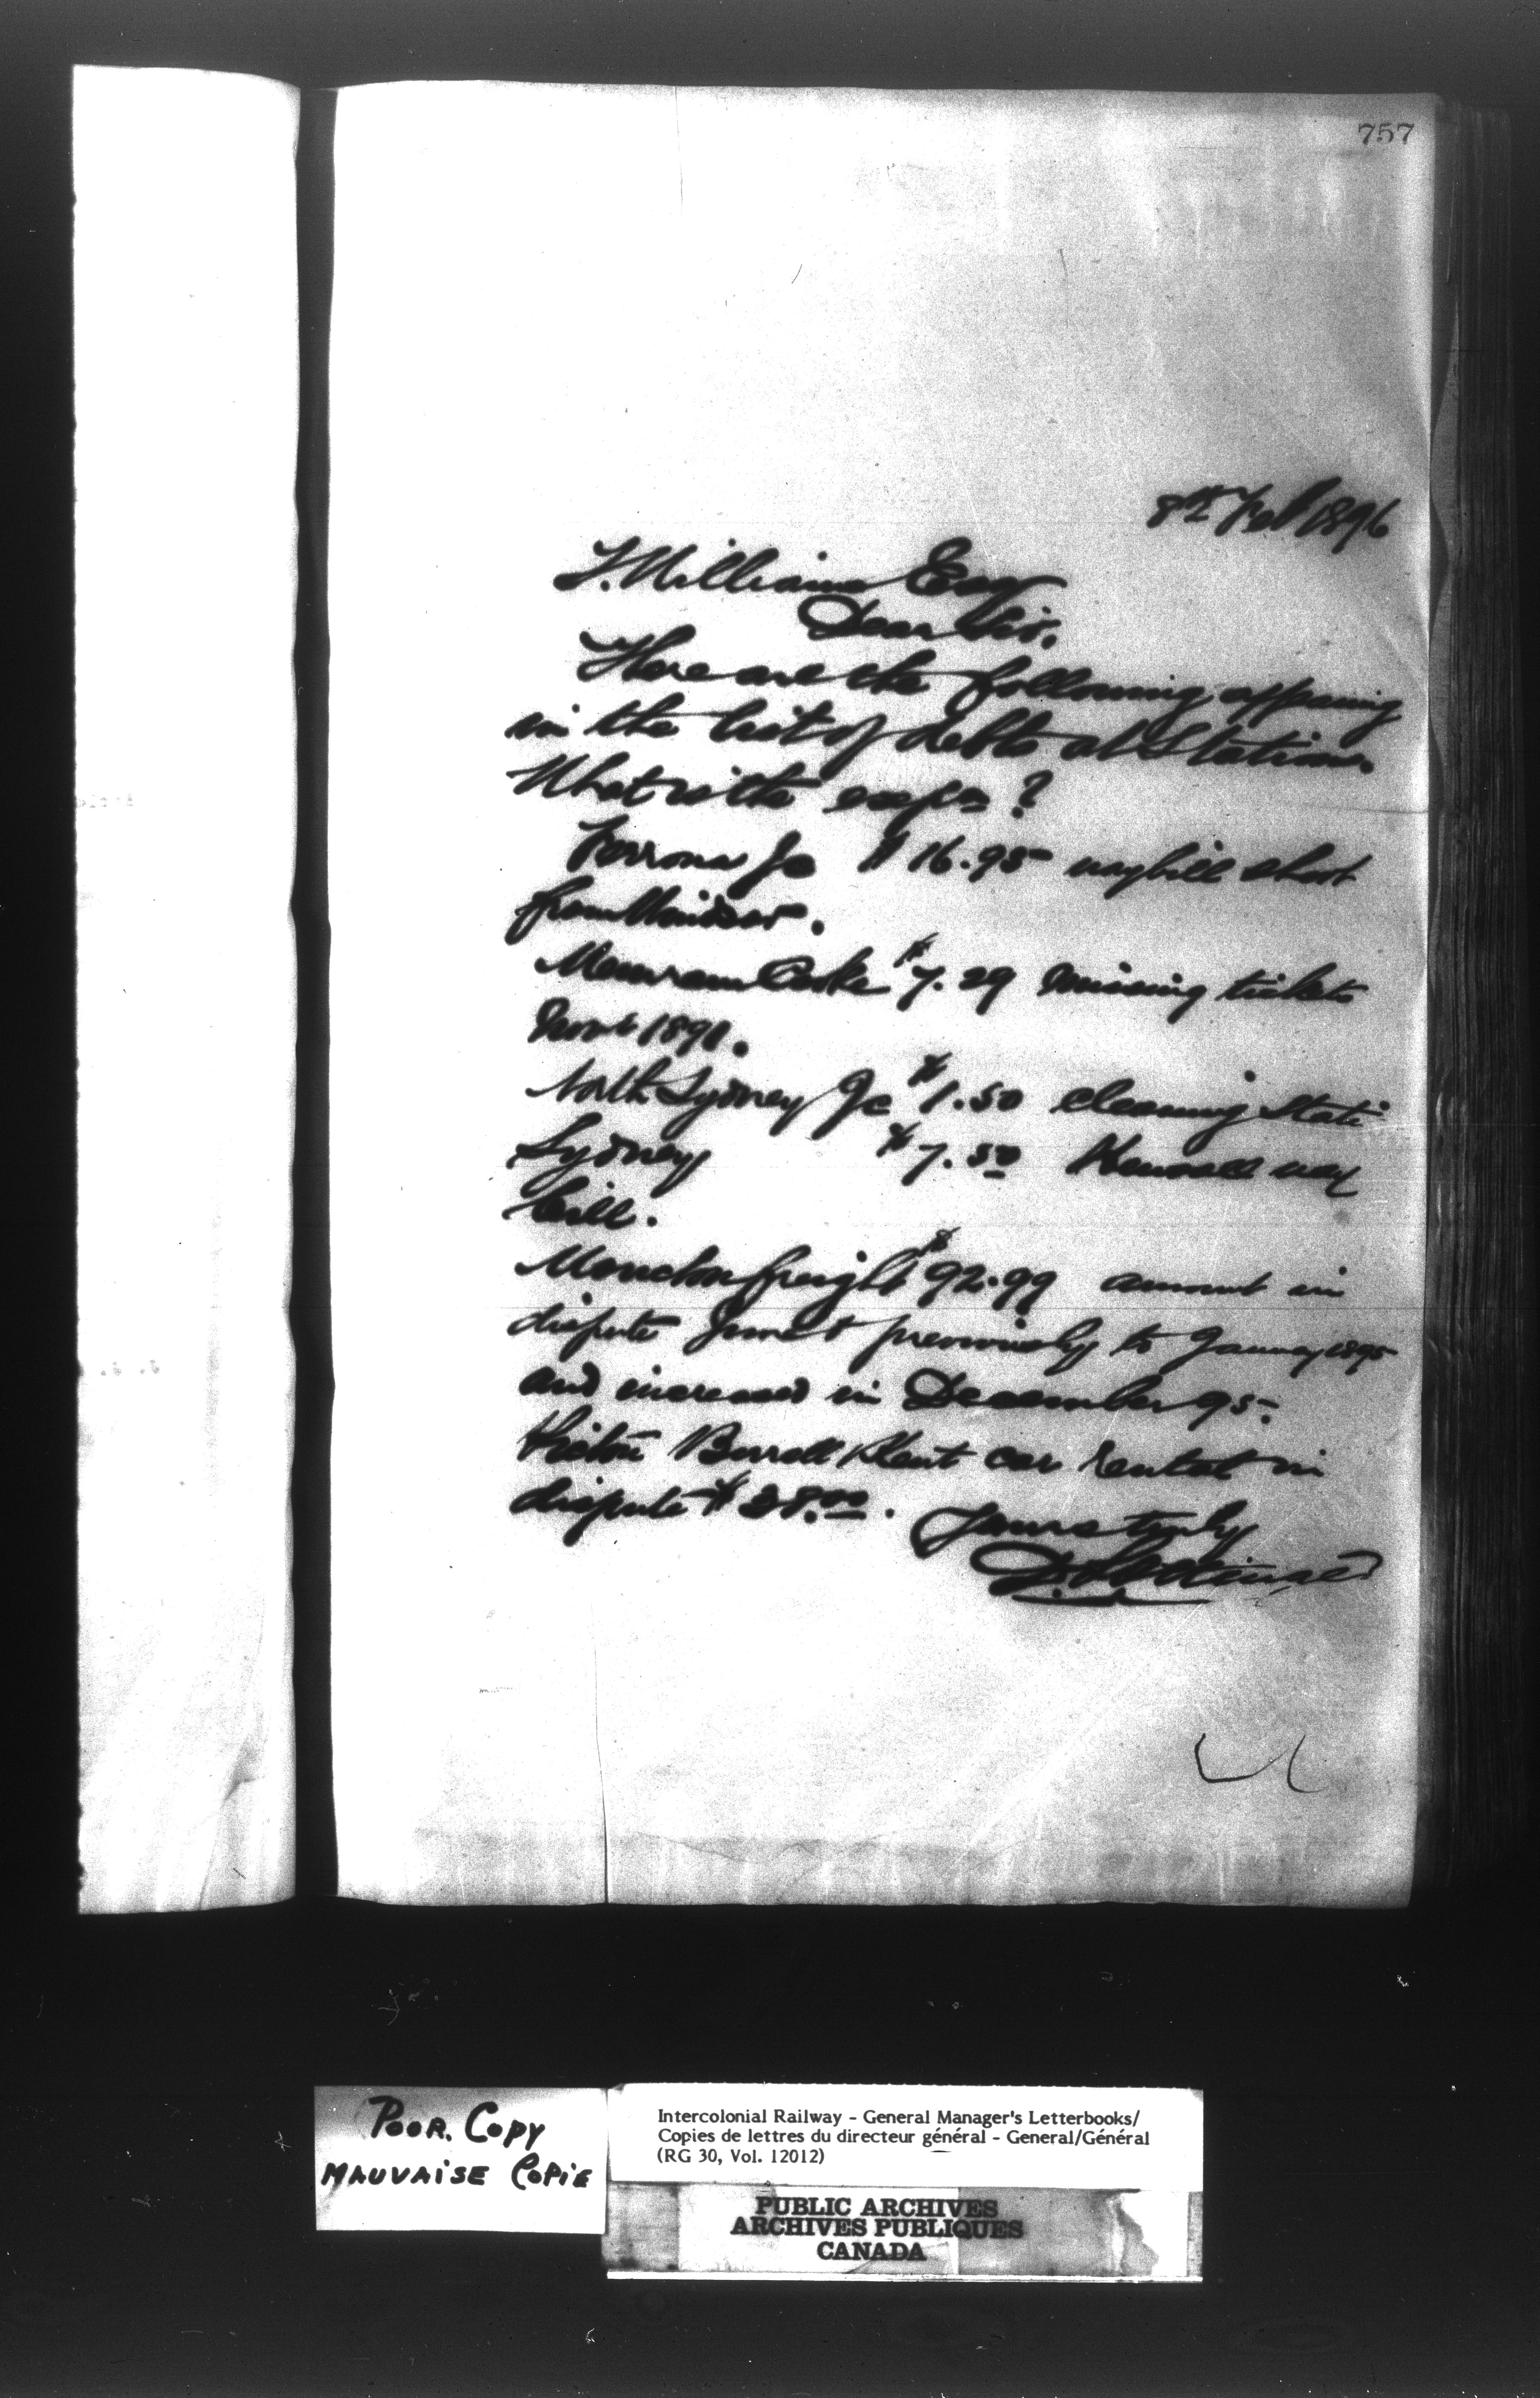 757
8th Feb 1896
T. Williams Esq
Dear Sir.
There are the following appearing
in the list of debts at Stations.
What is the expn ?
Ferrona Jc $16.95 waybill short
from Windsor.
Memramcooke $7.29 missing tickets
Novr 1891.
North Sydney Jc $1.50 cleaning Stati
Sydney $7.50 way
bill.
Moncton freight $92.99 amount in
dispute previously to January 1895
and increased in December 95.
Burrell car rental in
dispute $28.00. Yours truly
D. Pottinger
Poor. Copy
Mauvaise Copie
Intercolonial Railway - General Manager's Letterbooks/
Copies de lettres du directeur général - General/Général
(RG 30, Vol. 12012)
PUBLIC ARCHIVES
ARCHIVES PUBLIQUES
CANADA